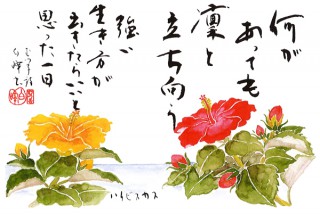 何が
あっても
凛と
立ち向う
強い
生き方が
出来たらいいと
思った一日
ハイビスカス